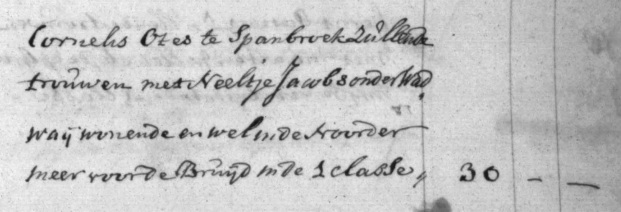 Cornelis Otes te Spanbroek Zullende
trouwen met Neeltje Jacobs onder Wad
waij wonende en wel in de Noorder
meer voor de Bruijd in de 1 classe „ 30 - -